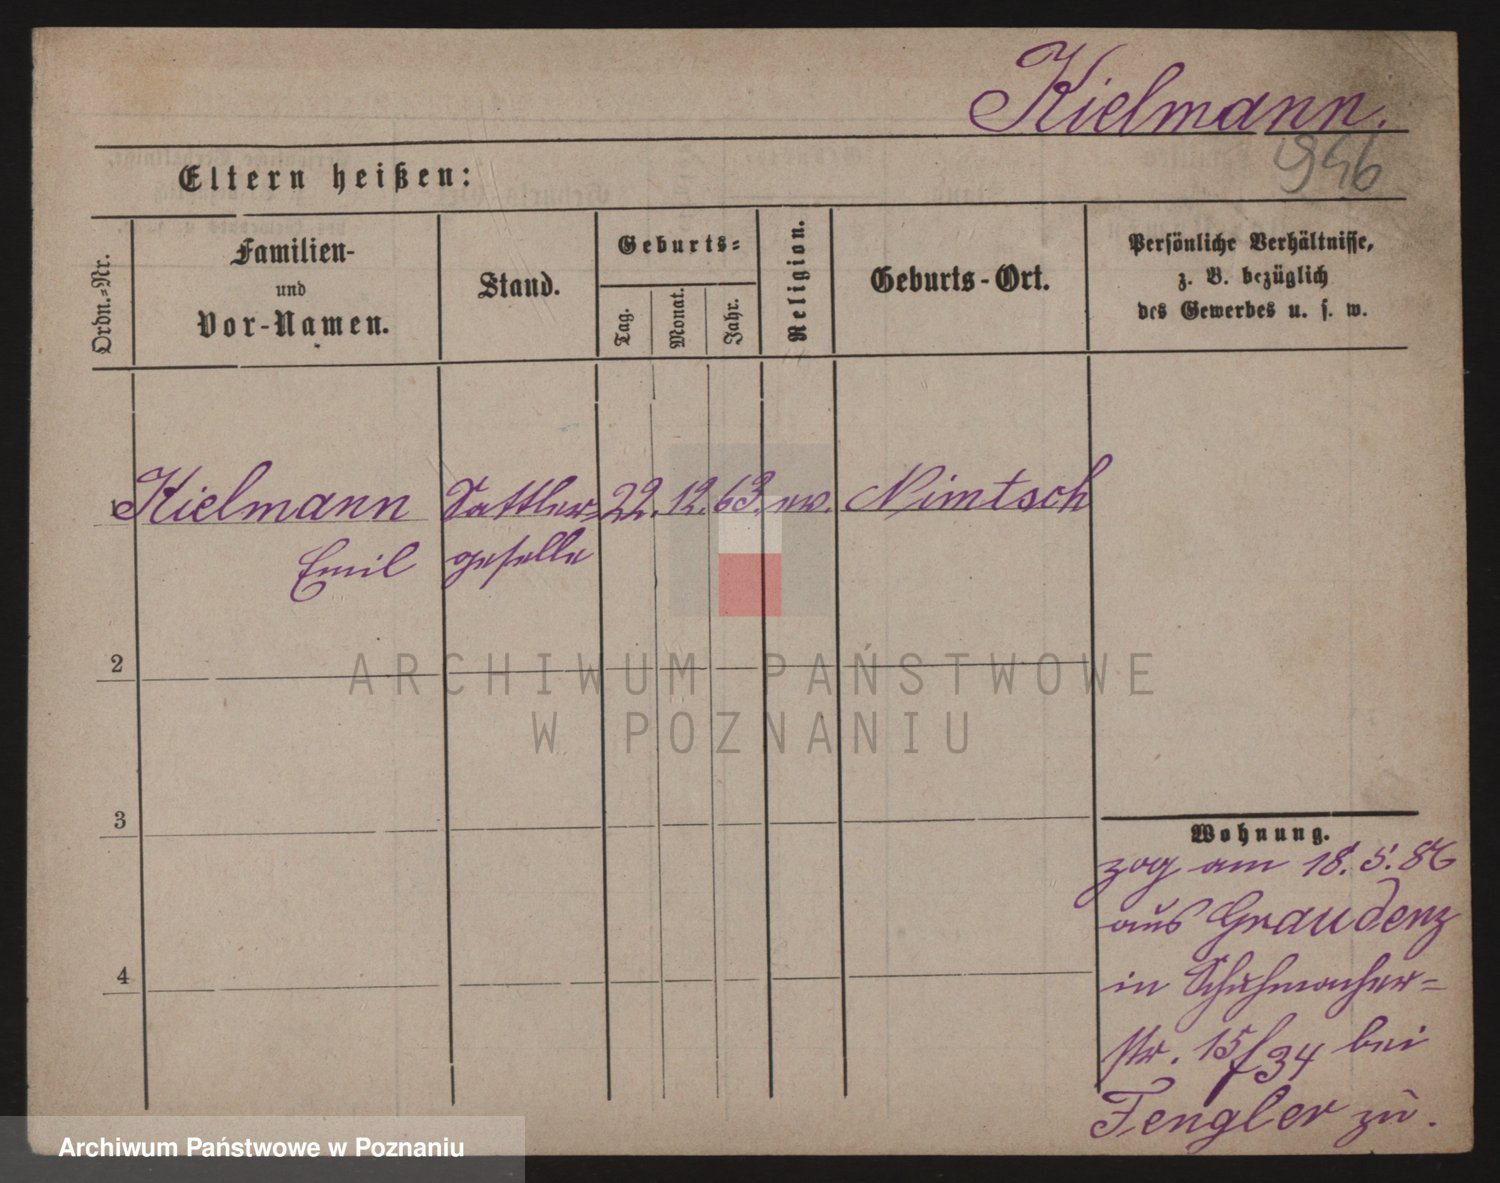 Kielmann.
946
Eltern heißen:
Ordn.-Nr.
Familien-
und
Vor-Namen.
Stand.
Geburts-
Tag.
Monat.
Jahr.
Religion.
Geburts-Ort.
Persönliche Verhältnisse,
z. B. bezüglich
des Gewerbes u. s. w.
1 Kielmann Sattler- 22. 12. 63. ev. Nimtsch
Emil geselle
2
3
4
Wohnung.
zog am 18. 5. 86
aus Graudenz
in Schuhmacher-
str. 15/34 bei
Fengler zu.
ARCHIWUM PAŃSTWOWE
W POZNANIU
Archiwum Państwowe w Poznaniu